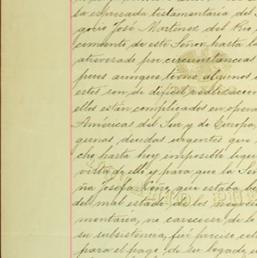 la expresada testamentaría del S
gorio José Martinez del Rio,
cimiento de este Señor hasta la
atravesado por circunstancias
pues aunque tiene algunos
estos son de dificil realizacion
ellos están complicados en opera
Américas del Sur y de Europa,
gunas deudas urgentes que
cho hasta hoy imposible liqui
virtud de ello y para que la Señ
ña Josefa que estaba
del mal estado de los
montaría, no careciese de lo
su subsistencia, fué preciso
para el pago de su legado